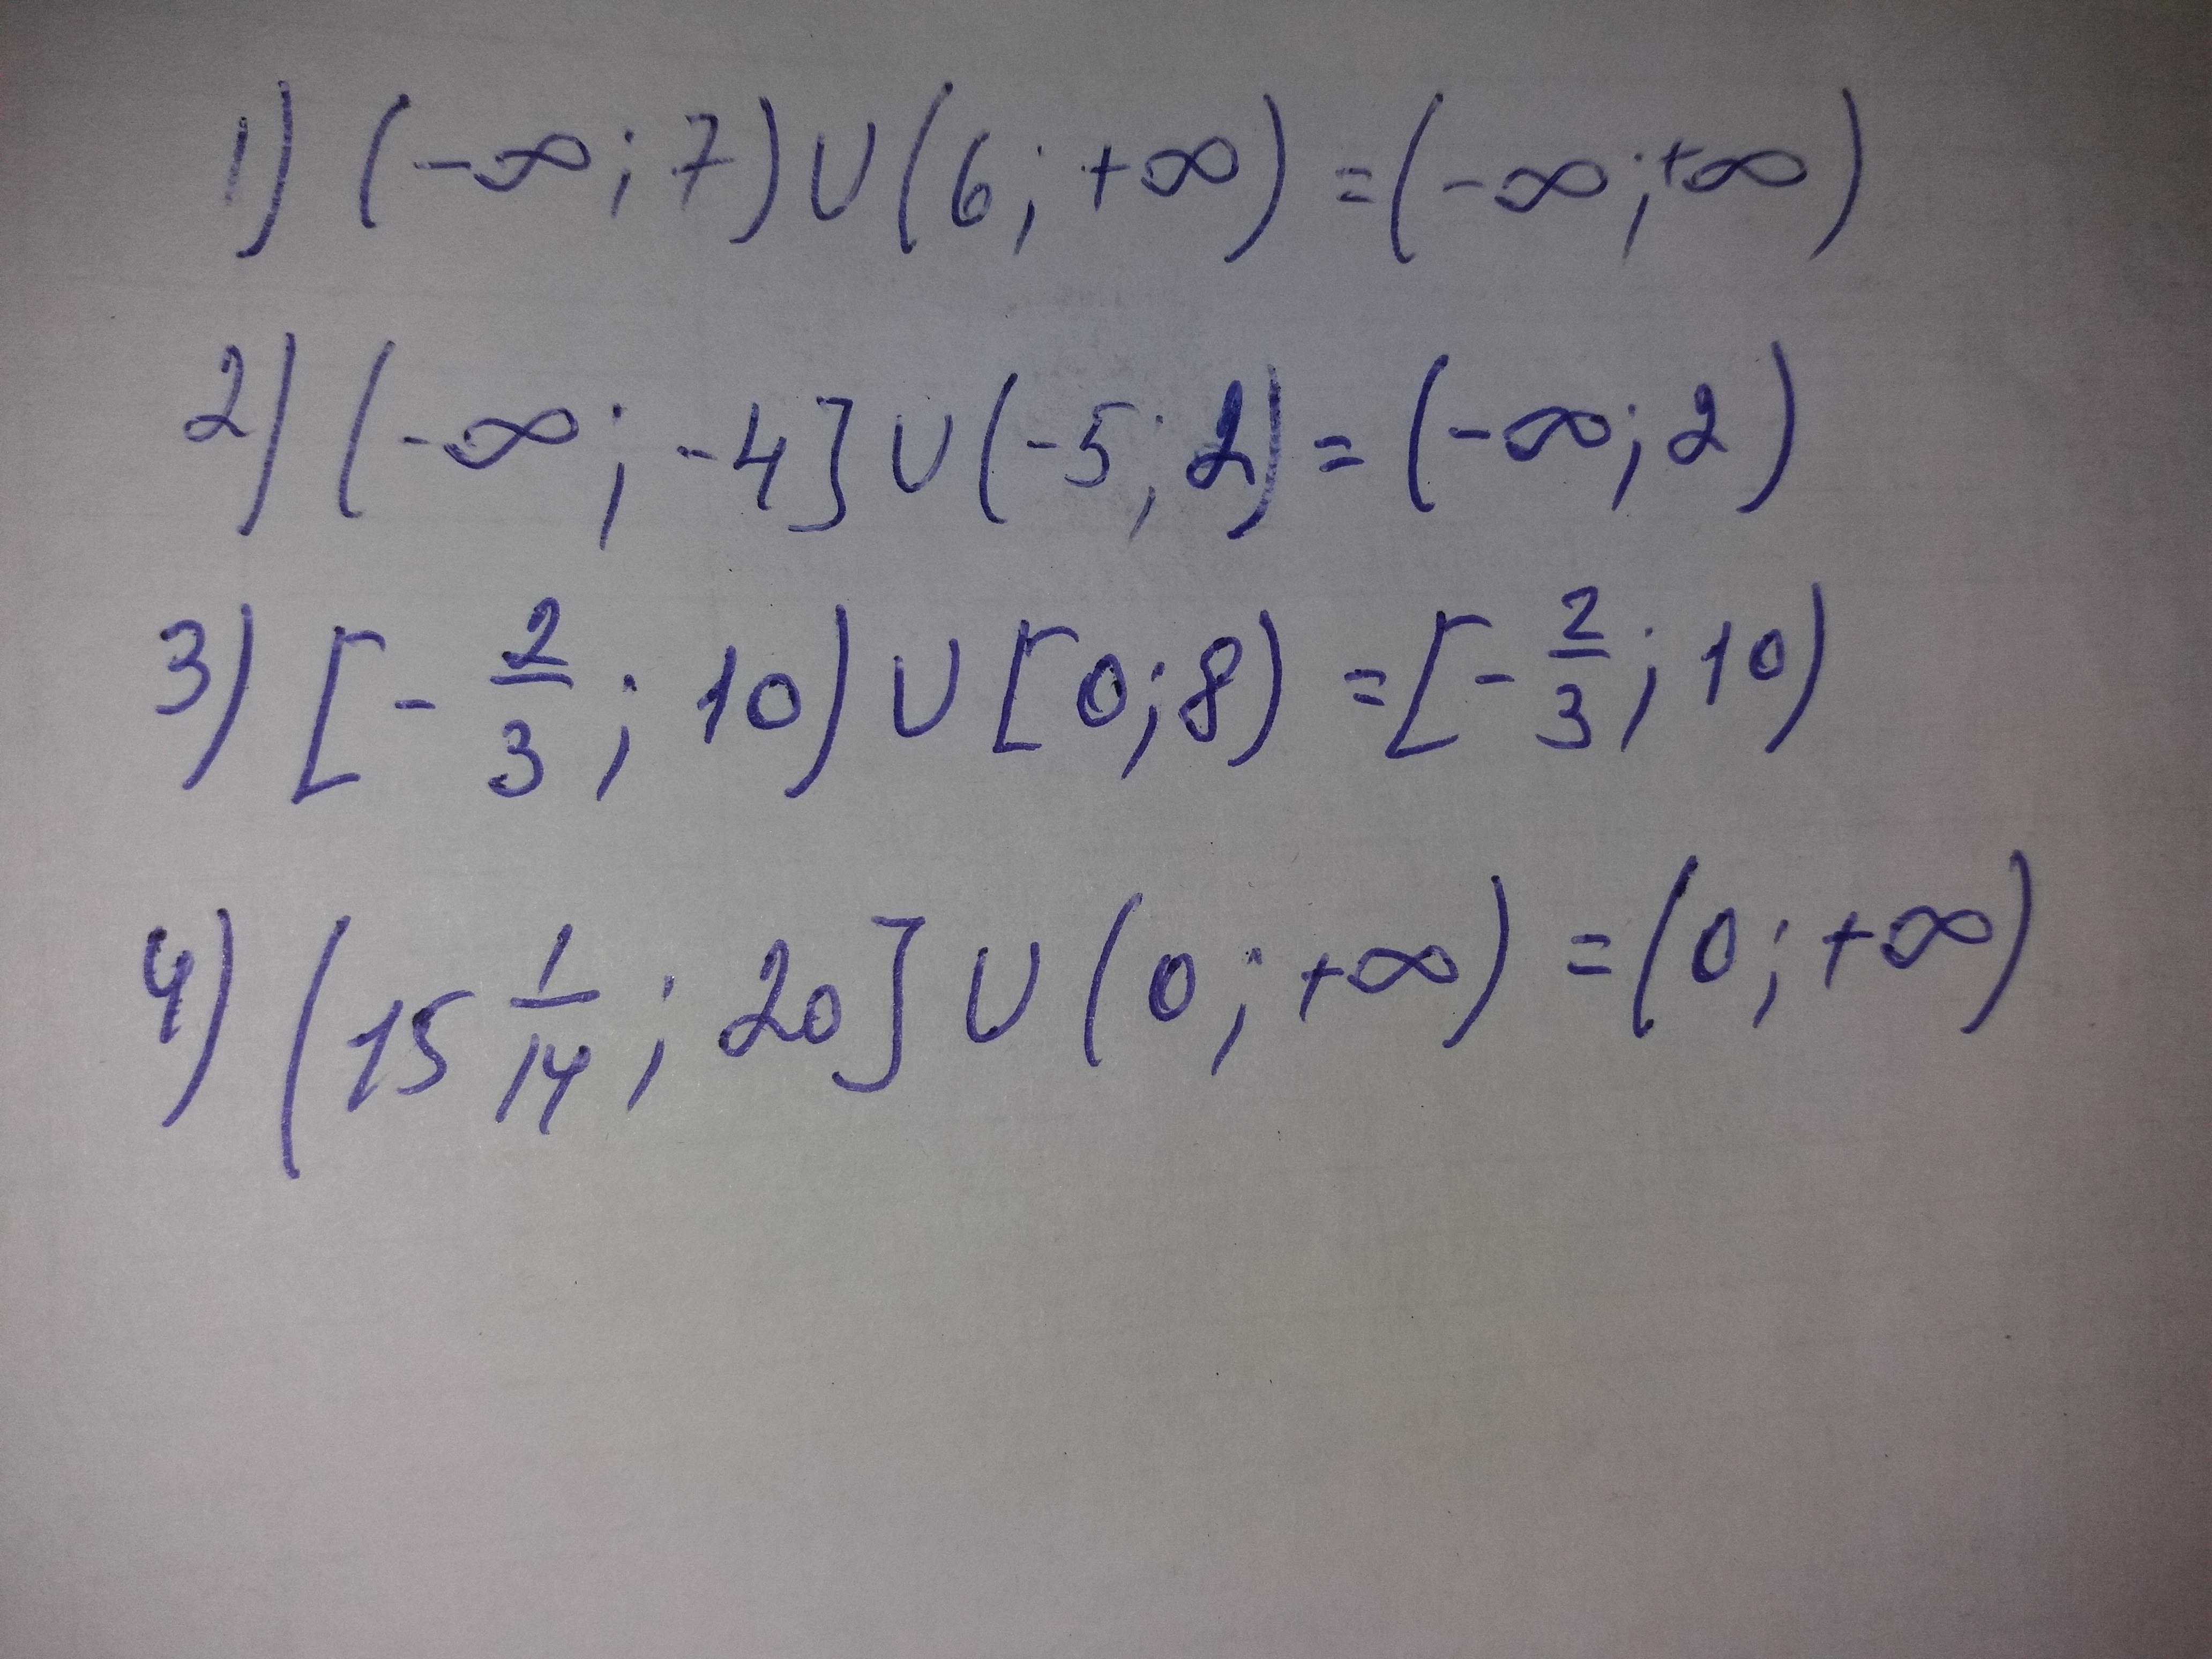 1) (-∞; 7) ∪ (6; +∞) = (-∞; +∞)
2) (-∞; -4] ∪ (-5; 2) = (-∞; 2)
3) [-2/3; 10) ∪ [0; 8) = [-2/3; 10)
4) (15 1/14; 20] ∪ (0; +∞) = (0; +∞)